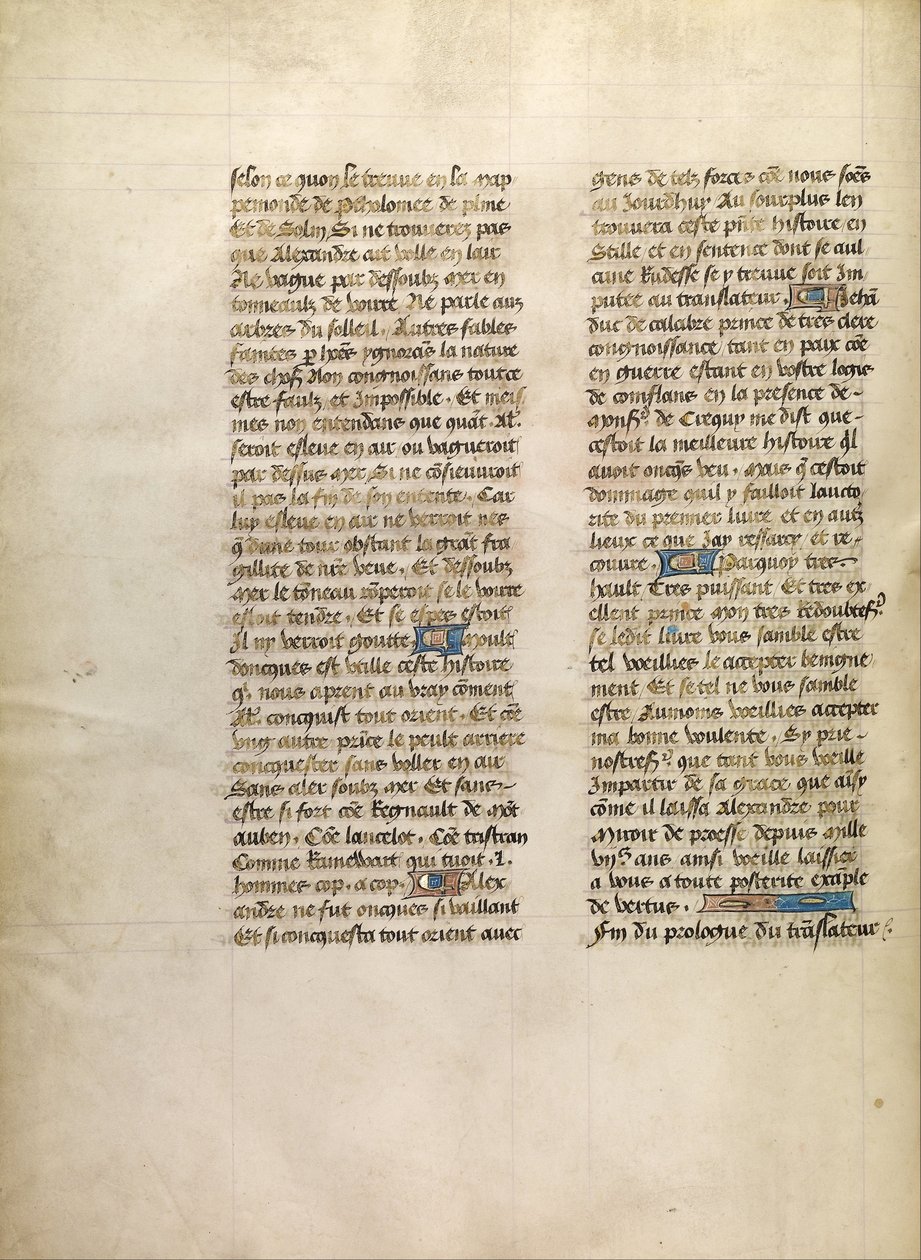 selon ce quon le treuve en la map
pemonde de ptholomee de pline
Et de Solin Si ne trouverez pas
que Alexandre ait volle en lair
Ne vague par dessoubz mer en
tonneaulz de voirre Ne parle aux
arbres du solleil. Autres fables
faintes p hões ygnorãs la nature
des choses Non congnoissans tout ce
estre faulz et Impossible. Et meis
mes non entendans que quãt Al.
seroit esleve en air ou vagueroit
par dessus mer Si ne cõsieuvroit
il pas la fin de son entente. Car
luy esleve en air ne verroit nes
q̃ dune tour obstant la grãt fra
gillite de nr̃e veue. Et dessoubz
mer le tõneau rõperoit se le voirre
estoit tendre. Et se espes estoit
Il ny verroit goutte Moult
doncques est utille ceste histoire
q̃ nous aprent au vray cõment
Al. concquist tout orient. Et cõe
ung autre prĩce le peult arriere
concquester sans voller en air
Sans aler soubz mer Et sans
estre si fort cõe Regnault de mõt
auben. Cõe lancelot. Cõe tristran
Comme Rainewart qui tuoit .L.
hommes cop. a cop. Alex
andre ne fut oncques si vaillant
Et si concquesta tout orient avec
gens de telz forces cõe nous soẽs
au Jourdhuy Au sourplus len
trouvera ceste pñte histoire en
Stille et en sentence dont se aul
cune Rudesse se y treuve soit Im
putee au translateur. Jehã
duc de calabre prince de tres clere
congnoissance tant en paix cõe
en guerre estant en vostre logis
de conflans en la presence de
monsr de Crequy me dist que
cestoit la meilleure histoire q̃l
avoit oncq̃s veu. mais q̃ cestoit
dommage quil y failloit laucto
rite du premier livre et en autz
lieux ce que Jay ressarcy et re
couvre. Parquoy tres
hault Tres puissant Et tres ex
ellent prince mon tres Redoubte sr
se ledit livre vous samble estre
tel veillies le accepter benigne
ment Et se tel ne vous samble
estre Aumoins veillies accepter
ma bonne voulente. Sy prie
nostre sr que tant vous veille
Impartir de sa grace que aĩsy
cõme il laissa Alexandre pour
Miroir de proesse depuis mille
viiC ans ainsi veille laissier
a vous a toute posterite exãple
de vertus.
Fin du prologue du trãslateur